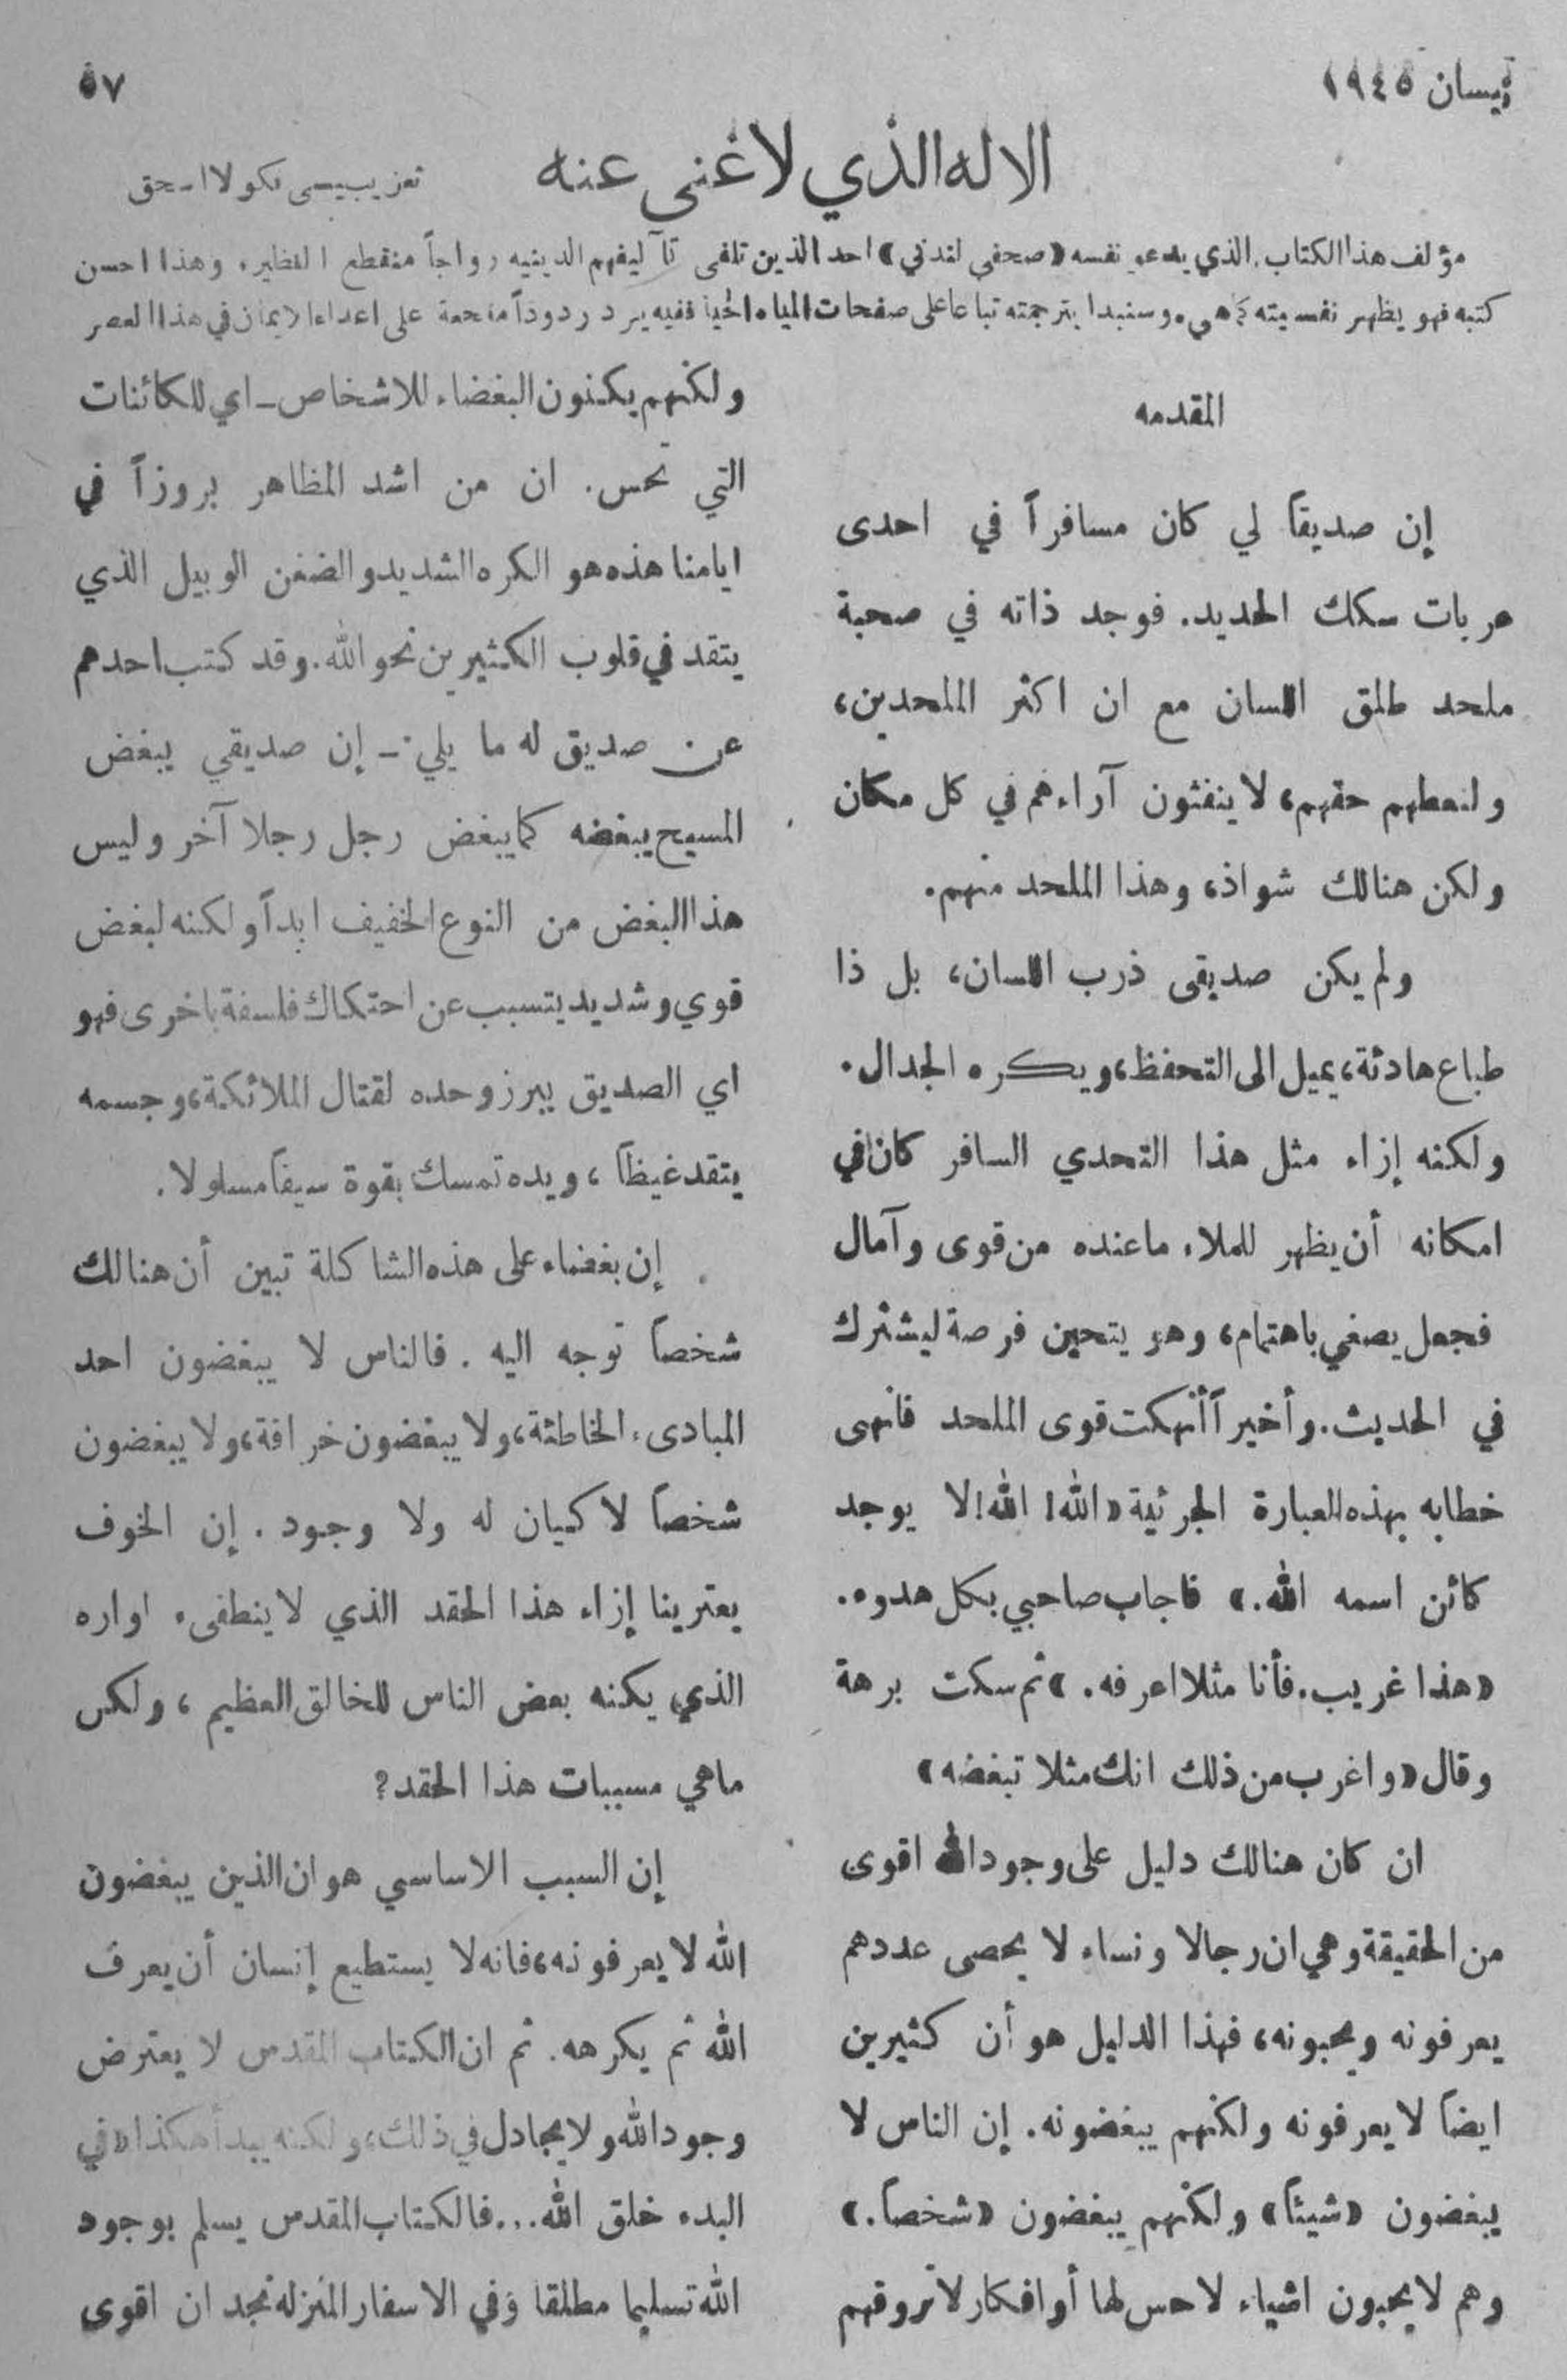 نيسان ١٩٤٥
٥٧
الاله الذي لا غنى عنه
تعريب عيسى نكولا اسحق
مؤلف هذا الكتاب. الذي يدعو نفسه «صحفي لندني» احد الذين تلقى تآليفهم الدينيه رواجاً منقطع النظير. وهذا احسن
كتبه فهو يظهر نفسيته كما هي. وسنبدا بترجمته تباعا على صفحات المياه الحية ففيه يرد ردوداً مفحمة على اعداء الايمان في هذا العصر
المقدمه
إن صديقاً لي كان مسافراً في احدى
عربات سكك الحديد. فوجد ذاته في صحبة
ملحد طلق اللسان مع ان اكثر الملحدين،
ولنعطهم حقهم، لا ينفثون آراءهم في كل مكان
ولكن هنالك شواذ، وهذا الملحد منهم.
ولم يكن صديقى ذرب اللسان، بل ذا
طباع هادئة، يميل الى التحفظ، ويكره الجدال.
ولكنه إزاء مثل هذا التحدي السافر كان في
امكانه أن يظهر للملاء ما عنده من قوى وآمال
فجعل يصغي باهتمام، وهو يتحين فرصة ليشترك
في الحديث. وأخيراً أنهكت قوى الملحد فانهى
خطابه بهذه العبارة الجرئية «الله! الله! لا يوجد
كائن اسمه الله.» فاجاب صاحبي بكل هدوء.
«هذا غريب. فأنا مثلا اعرفه.» ثم سكت برهة
وقال «واغرب من ذلك انك مثلا تبغضه»
ان كان هنالك دليل على وجود الله اقوى
من الحقيقة وهي ان رجالا ونساء لا يحصى عددهم
يعرفونه ويحبونه، فهذا الدليل هو أن كثيرين
ايضاً لا يعرفونه ولكنهم يبغضونه. إن الناس لا
يبغضون «شيئاً» ولكنهم يبغضون «شخصاً.»
وهم لا يحبون اشياء لا حس لها أو افكار لا تروقهم
ولكنهم يكنون البغضاء للاشخاص ـ اي للكائنات
التي تحس. ان من اشد المظاهر بروزاً في
ايامنا هذه هو الكره الشديد والضغن الوبيل الذي
يتقد في قلوب الكثيرين نحو الله. وقد كتب احدهم
عن صديق له ما يلي: ـ إن صديقي يبغض
المسيح يبغضه كما يبغض رجل رجلا آخر وليس
هذا البغض من النوع الخفيف ابداً ولكنه لبغض
قوي وشديد يتسبب عن احتكاك فلسفة باخرى فهو
اي الصديق يبرز وحده لقتال الملائكة، وجسمه
يتقد غيظاً، ويده تمسك بقوة سيفاً مسلولا.
إن بغضاء على هذه الشاكلة تبين أن هنالك
شخصاً توجه اليه. فالناس لا يبغضون احد
المبادىء الخاطئة، ولا يبغضون خرافة، ولا يبغضون
شخصاً لا كيان له ولا وجود. إن الخوف
يعترينا إزاء هذا الحقد الذي لا ينطفىء اواره
الذي يكنه بعض الناس للخالق العظيم، ولكن
ماهي مسببات هذا الحقد؟
إن السبب الاساسي هو ان الذين يبغضون
الله لا يعرفونه، فانه لا يستطيع إنسان أن يعرف
الله ثم يكرهه. ثم ان الكتاب المقدس لا يعترض
وجود الله ولا يجادل في ذلك، ولكنه يبدأ هكذا «في
البدء خلق الله... فالكتاب المقدس يسلم بوجود
الله تسليما مطلقا وفي الاسفار المنزله نجد ان اقوى